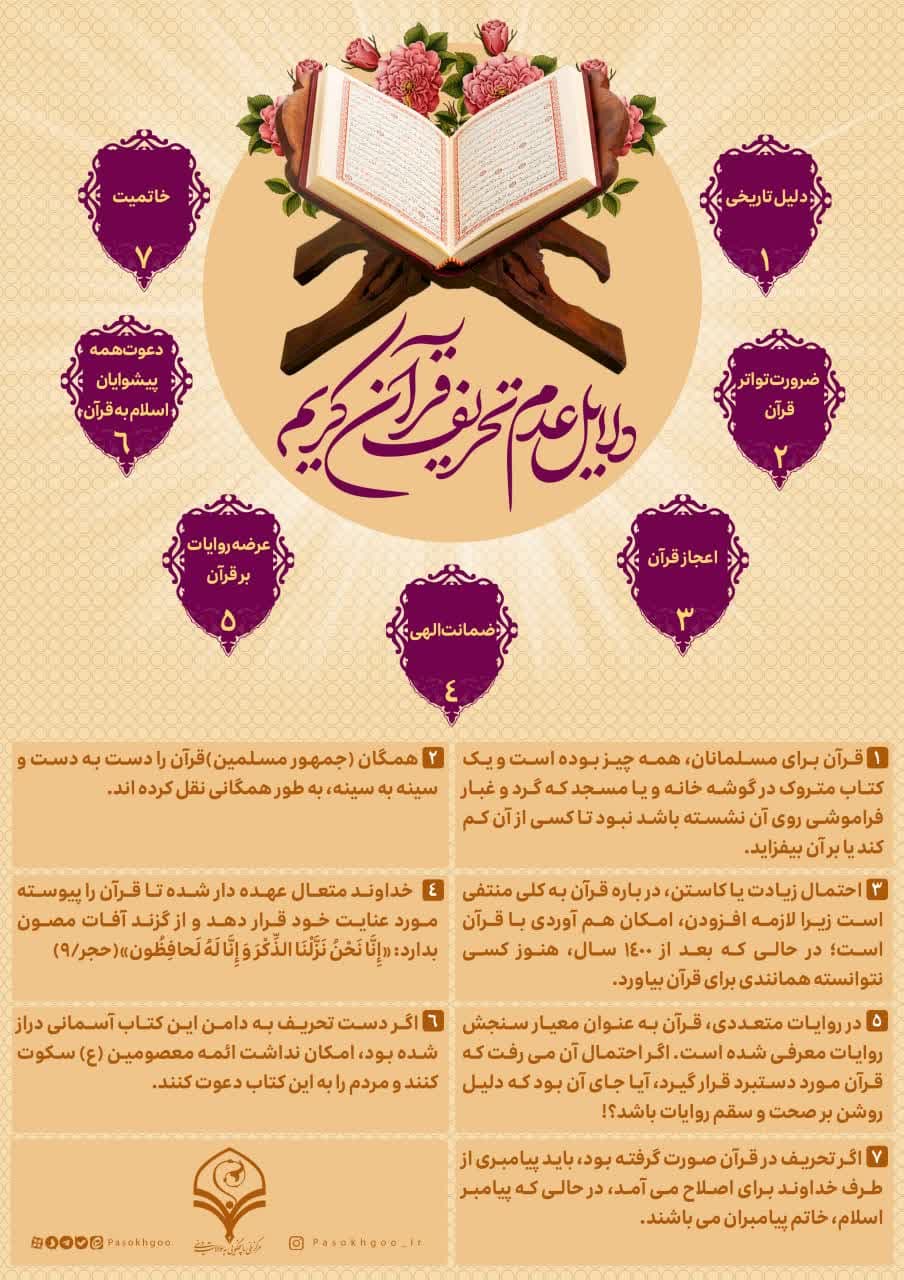 دلایل عدم تحریف قرآن کریم
دلیل تاریخی
۱
ضرورت تواتر
قرآن
۲
اعجاز قرآن
۳
ضمانت الهی
٤
عرضه روایات
بر قرآن
۵
دعوت همه
پیشوایان
اسلام به قرآن
٦
خاتمیت
۷
۱ قرآن برای مسلمانان، همه چیز بوده است و یک
کتاب متروک در گوشه خانه و یا مسجد که گرد و غبار
فراموشی روی آن نشسته باشد نبود تا کسی از آن کم
کند یا بر آن بیفزاید.
۲ همگان (جمهور مسلمین)قرآن را دست به دست و
سینه به سینه، به طور همگانی نقل کرده اند.
۳ احتمال زیادت یا کاستن، در باره قرآن به کلی منتفی
است زیرا لازمه افزودن، امکان هم آوردی با قرآن
است؛ در حالی که بعد از ۱٤۰۰ سال، هنوز کسی
نتوانسته همانندی برای قرآن بیاورد.
٤ خداوند متعال عهده دار شده تا قرآن را پیوسته
مورد عنایت خود قرار دهد و از گزند آفات مصون
بدارد: «إِنَّا نَحْنُ نَزَّلْنَا الذِّكْرَ وَ إِنَّا لَهُ لَحافِظُون»(حجر/۹)
۵ در روایات متعددی، قرآن به عنوان معیار سنجش
روایات معرفی شده است. اگر احتمال آن می رفت که
قرآن مورد دستبرد قرار گیرد، آیا جای آن بود که دلیل
روشن بر صحت و سقم روایات باشد؟!
٦ اگر دست تحریف به دامن این کتاب آسمانی دراز
شده بود، امکان نداشت ائمه معصومین (ع) سکوت
کنند و مردم را به این کتاب دعوت کنند.
۷ اگر تحریف در قرآن صورت گرفته بود، باید پیامبری از
طرف خداوند برای اصلاح می آمد، در حالی که پیامبر
اسلام، خاتم پیامبران می باشند.
Pasokhgoo
مرکز ملی پاسخگویی به سوالات دینی
Pasokhgoo_ir